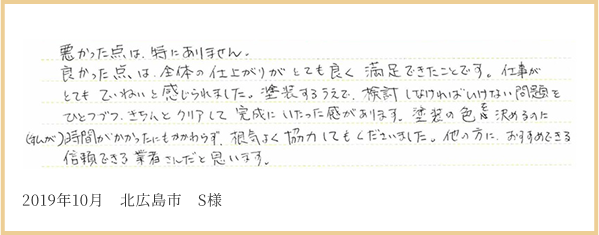 悪かった点は、特にありません。
良かった点、は、全体の仕上がりがとても良く満足できたことです。仕事が
とてもていねいと感じられました。塗装するうえで、検討しなければいけない問題を
ひとつづつ、きちんとクリアして完成にいたった感があります。塗装の色を決めるのに
(私が)時間がかかったにもかかわらず、根気よく協力してもくださいました。他の方に、おすすめできる
信頼できる業者さんだと思います。
2019年10月 北広島市 S様